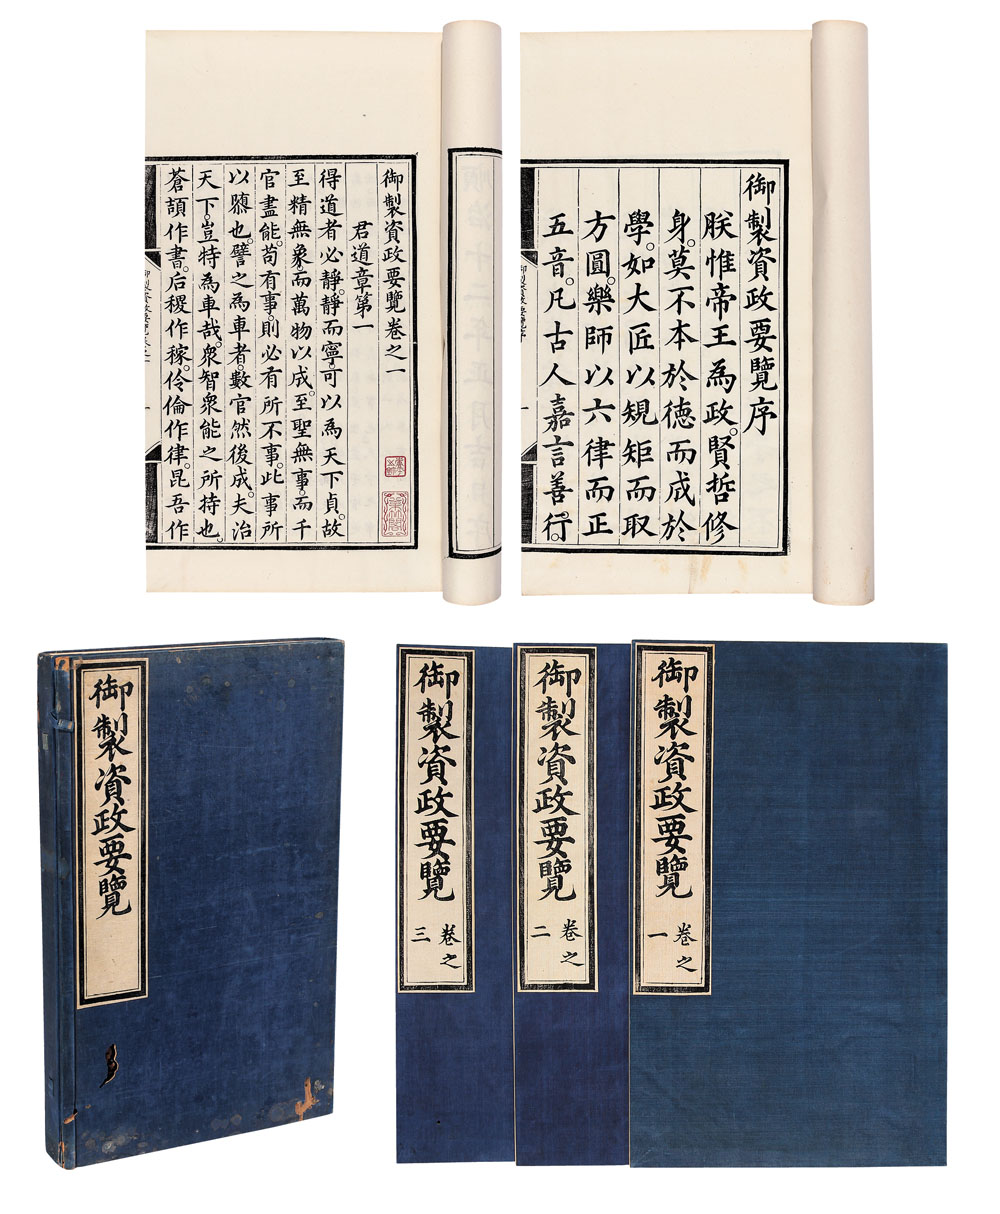 御製資政要覽序
朕惟帝王為政。賢哲修
身。莫不本於德而成於
學。如大匠以規矩而取
方圓。樂師以六律而正
五音。凡古人嘉言善行。
御製資政要覽卷之一
君道章第一
得道者必靜。靜而寧。可以為天下貞。故
至精無象。而萬物以成。至聖無事。而千
官盡能。苟有事。則必有所不事。此事所
以隳也。譬之為車者。數官然後成。夫治
天下。豈特為車哉。衆智衆能之所持也。
蒼頡作書。后稷作稼。伶倫作律。昆吾作
順治十二年正月
御製資政要覽
御製資政要覽
卷之
三
御製資政要覽
卷之
二
御製資政要覽
卷之
一